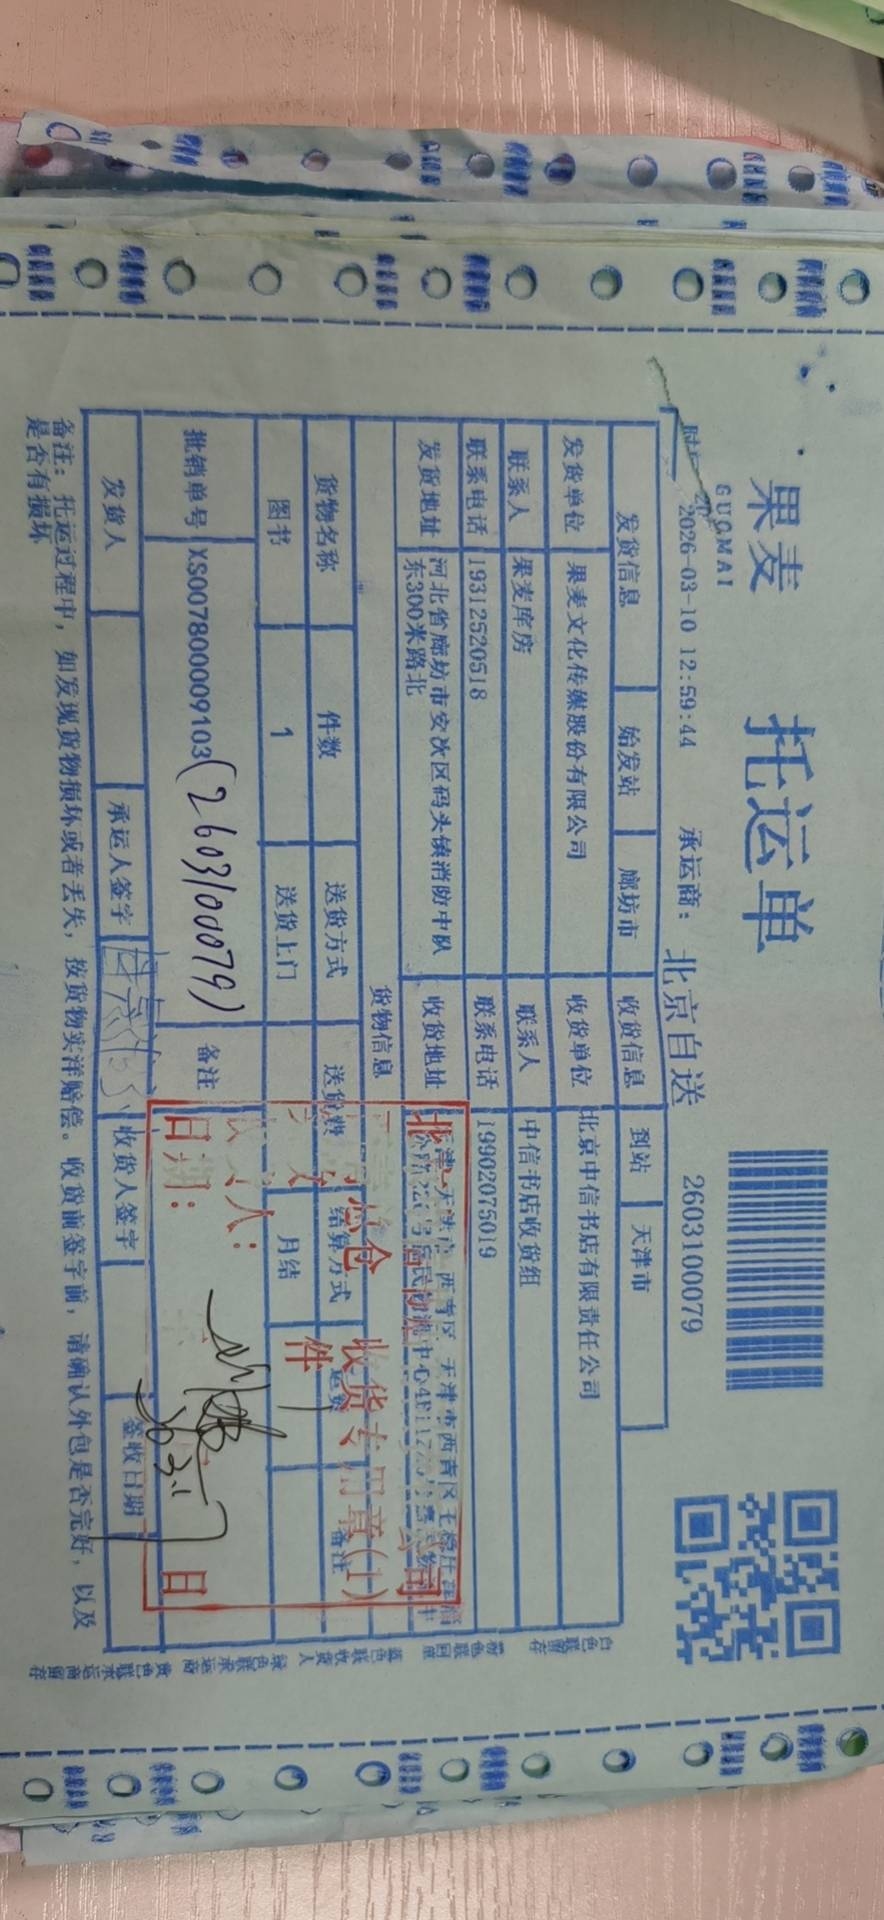 果麦 托运单
GUOMAI
2603100079
2026-03-10 12:59:44 承运商: 北京自送
发货信息 始发站 廊坊市 收货信息 到站 天津市
发货单位 果麦文化传媒股份有限公司 收货单位 北京中信书店有限责任公司
联系人 果麦库房 联系人 中信书店收货组
联系电话 19312520518 联系电话 19902075019
发货地址 河北省廊坊市安次区码头镇消防中队东300米路北 收货地址 天津市 西青区 天津市西青区
货物信息
货物名称 件数 送货方式 送货费 结算方式 运费 备注
图书 1 送货上门 月结
批销单号 XS007800009103 (2603100079) 备注
发货人 承运人签字 收货人签字 签收日期
备注: 托运过程中, 如发现货物损坏或者丢失, 按货物实洋赔偿。收货前签字前, 请确认外包是否完好, 以及是否有损坏
白色联留存
粉色联回单
蓝色联收货人
绿色联承运商
黄色联承运商留存
收货专用章(1)
件
人:
日期:
日